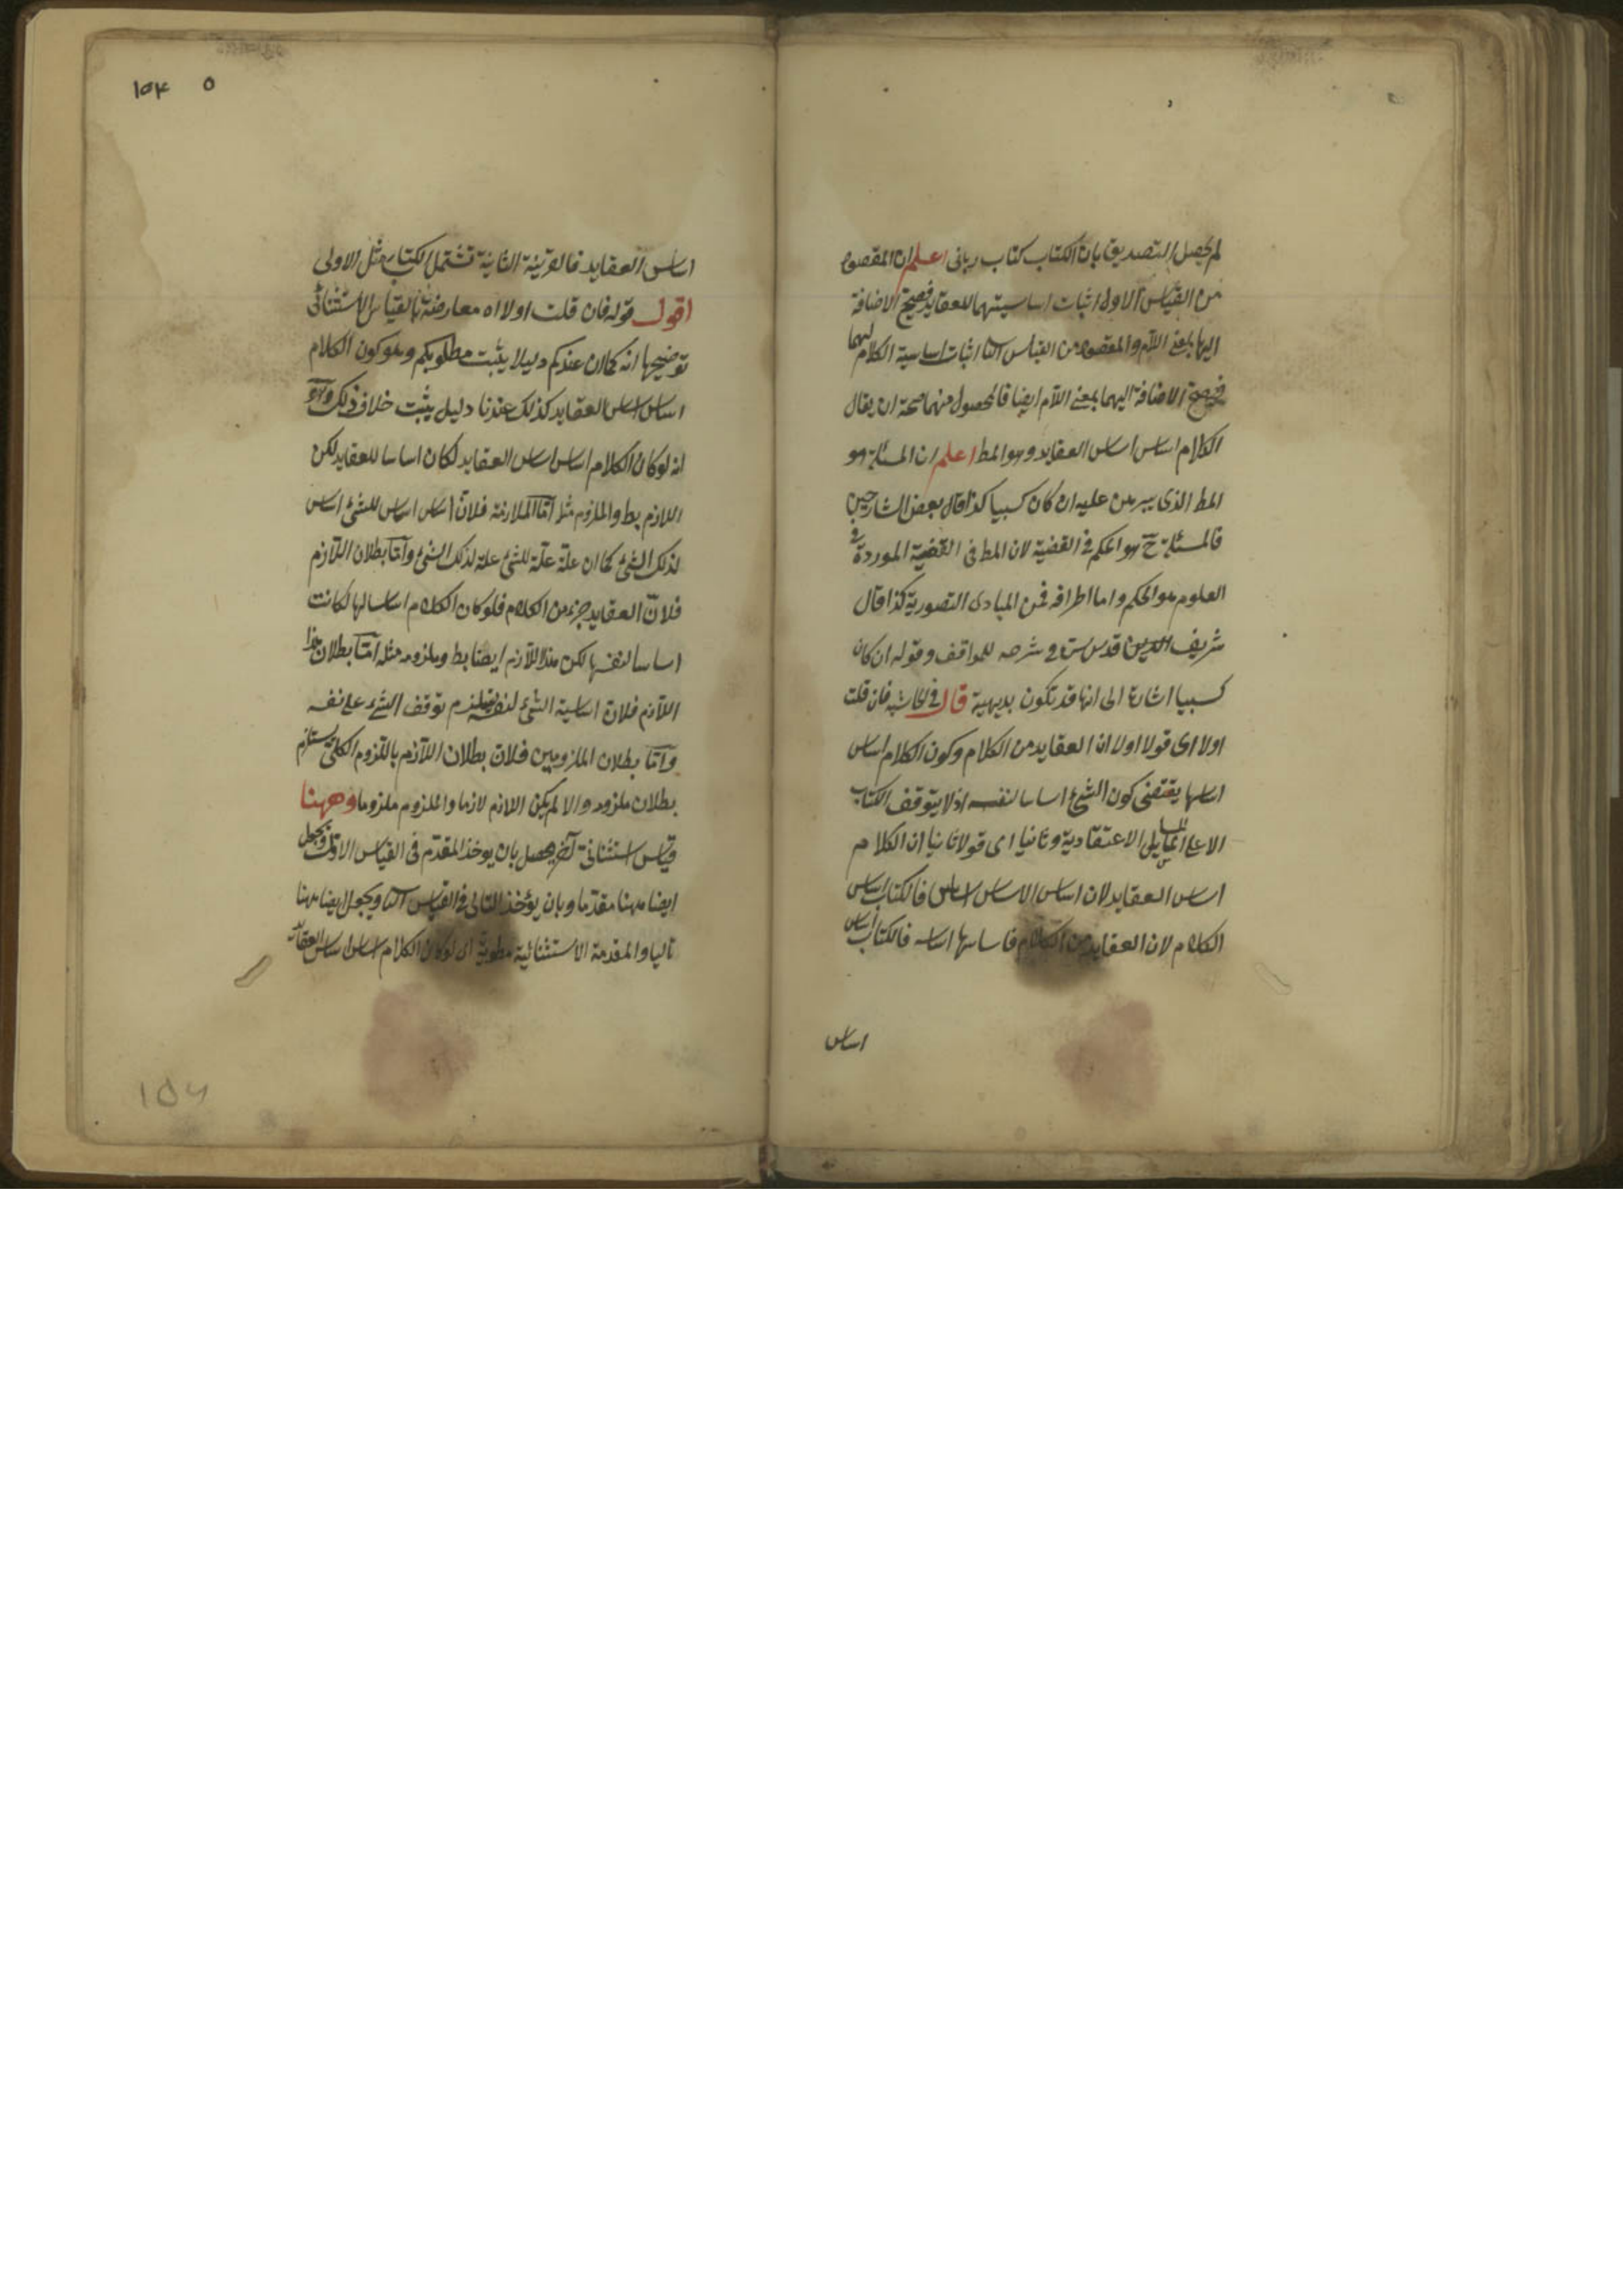 لم يحصل التصديق بان الكتاب كتاب ربانى اعلم ان المقصود
من القياس الاول اثبات اساسيتهما للعقايد فصح الاضافة
اليها بمعنى اللام والمقصود من القياس الثا اثبات اساسية الكلام لهما
فصح الاضافة اليهما بمعنى اللام ايضا فالمحصول منهما صحة ان يقال
الكلام اساس اساس العقايد وهو المط اعلم ان المسئلة هو
المط الذى يبرهن عليه ان كان كسبيا كذا قال بعض الشارحين
فالمسئلة ح هو الحكم فى القضية لان المط فى القضية الموردة فى
العلوم هو الحكم واما اطرافه فمن المبادى التصورية كذا قال
شريف الدين قدس سره فى شرحه للمواقف وقوله ان كان
كسبيا اشارة الى انها قد تكون بديهية قال فى الحاشية فان قلت
اولا اى قولا اولا ان العقايد من الكلام وكون الكلام اساس
اساسها يقتضى كون الشئ اساسا لنفسه اذ لا يتوقف الكتاب
الا على المسايل الاعتقادية وثانيا اى قولا ثانيا ان الكلام
اساس العقايد لان اساس الاساس اساس فالكتاب اساس
الكلام لان العقايد من الكلام فاساسها اساسه فالكتاب اساس
اساس
١٥٤ ٥
اساس العقايد فالقرينة الثانية تشتمل الكتاب مثل الاولى
اقول قوله فان قلت اولا اه معارضة بالقياس الاستثنائى
توضيحها انه كما ان عندكم دليلا يثبت مطلوبكم وهو كون الكلام
اساس اساس العقايد كذلك عندنا دليل يثبت خلاف ذلك وهو
انه لو كان الكلام اساس اساس العقايد لكان اساسا للعقايد لكن
اللازم بط والملزوم مثله امّا الملازمة فلانّ اساس اساس للشئ اساس
لذلك الشئ كما ان علّة علّة للشئ علة لذلك الشئ وامّا بطلان اللازم
فلانّ العقايد جزء من الكلام فلو كان الكلام اساسا لها لكانت
اساسا لنفسها لكن هذا اللازم ايضا بط وملزومه مثله امّا بطلان هذا
اللازم فلانّ اساسية الشئ لنفسه يستلزم توقف الشئ على نفسه
وامّا بطلان الملزومين فلانّ بطلان اللازم باللزوم الكلى يستلزم
بطلان ملزومه والا لم يكن اللازم لازما والملزوم ملزوما وههنا
قياس استثنائى آخر يحصل بان يوخذ المقدّم فى القياس الاول ويجعل
ايضا ههنا مقدّما وبان يؤخذ التالى فى القياس الثا ويجعل ايضا ههنا
تاليا والمقدمة الاستثنائية مطوية اى لو كان الكلام اساس اساس العقايد
١٥٤